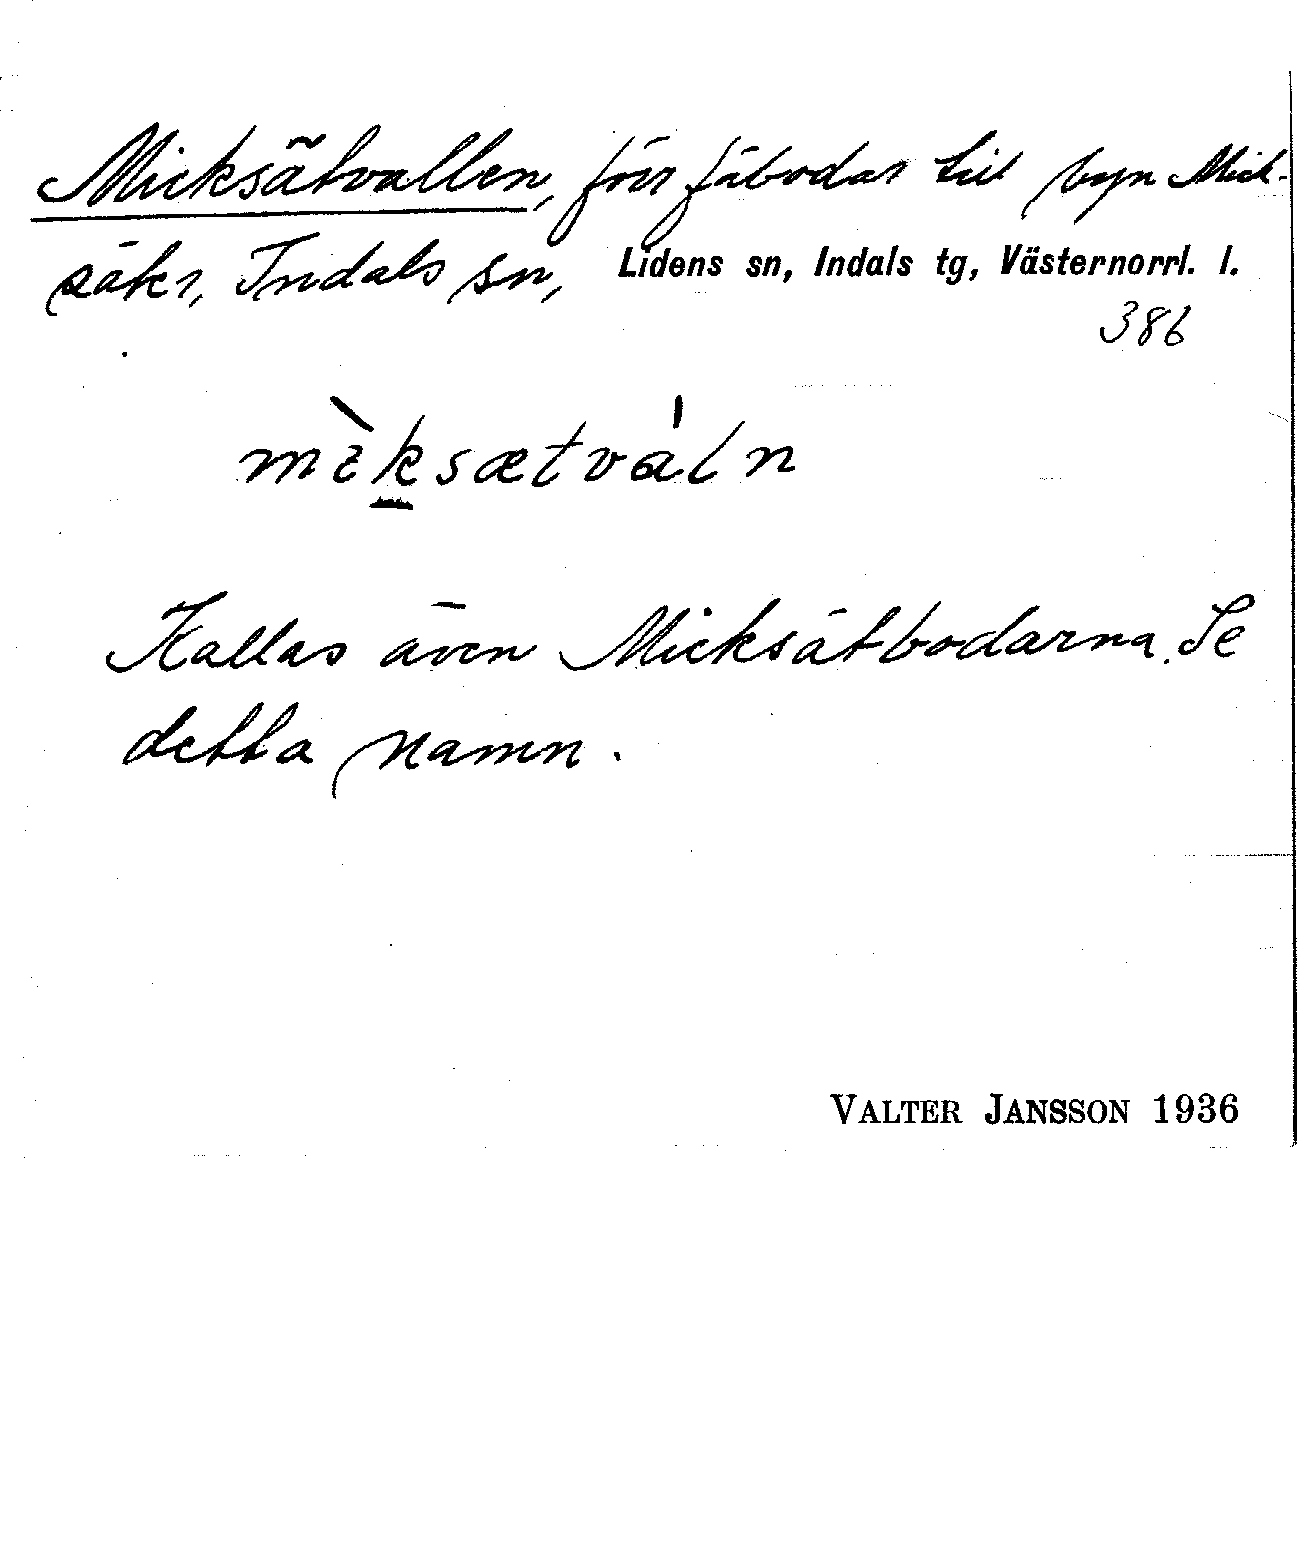 Micksätvallen, förr fäbodar till byn Mick-
säter, Indals sn, Lidens sn, Indals tg, Västernorrl. l.
386
mìksætváln
Kallas även Micksätbodarna. Se
detta namn.
VALTER JANSSON 1936